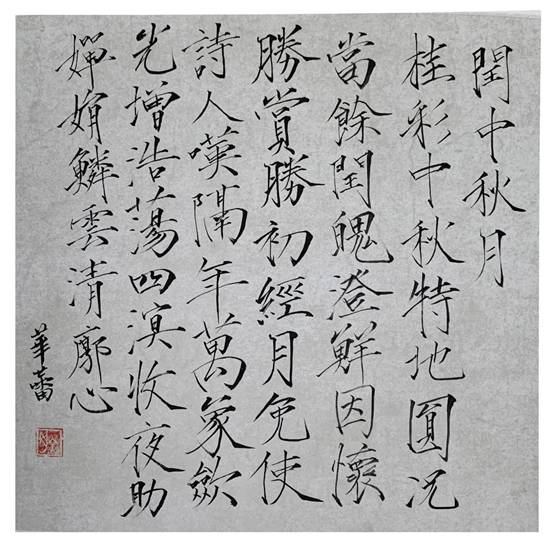 閏中秋月
桂彩中秋特地圓况
當餘閏魄澄鮮因懷
勝賞勝初經月免使
詩人嘆隔年萬象歛
光增浩蕩四溟收夜助
嬋娟鱗雲清廓心
華蕾